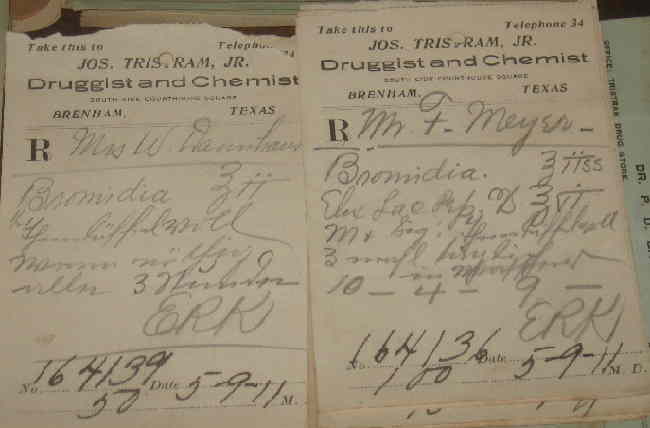 Take this to Telepho 34
JOS. TRISTRAM, JR.
Druggist and Chemist
SOUTH SIDE COURTHOUSE SQUARE
BRENHAM, TEXAS
R Mrs W.
Bromidia ʒii
Theelöffelvoll
wenn nöthig
alle 3 Stunden
ERK
No. 164139 Date 5-9-11 M.
50
Take this to Telephone 34
JOS. TRISTRAM, JR.
Druggist and Chemist
SOUTH SIDE COURTHOUSE SQUARE
BRENHAM, TEXAS
R Mr F. Meyer
Bromidia. ʒiiss
Elix Lac
M + Sig: Theelöffelvoll
3 mal täglich
in
10 - 4 - 9 -
ERK
No. 164136 Date 5-9-11 M. D.
100
OFFICE, TRISTRAM DRUG STORE.
DR. P. D.